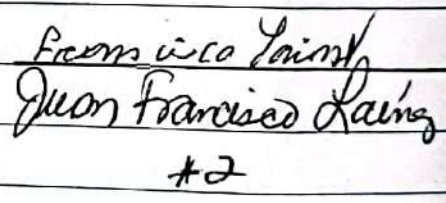 Francisco
Juan Francisco Laínez
#2